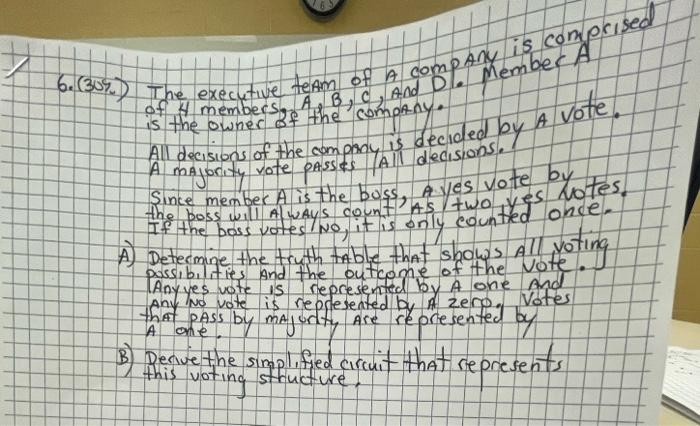 6. (30%) The executive team of A company is comprised
of 4 members, A, B, C, And D. Member A
is the owner of the company.
All decisions of the company is decided by A vote.
A majority vote passes All decisions.
Since member A is the boss, A yes vote by
the boss will Always count As two yes votes.
If the boss votes No, it is only counted once.
A) Determine the truth table that shows All voting
possibilities And the outcome of the vote.
Any yes vote is represented by A one And
Any No vote is represented by A zero. Votes
that pass by majority Are represented by
A one.
B) Derive the simplified circuit that represents
this voting structure.